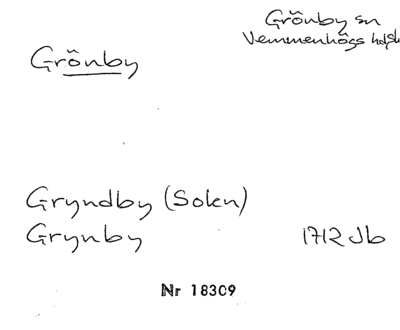 Grönby sn
Vemmenhögs hd
Grönby
Gryndby (Soken)
Grynby 1712 Jb
Nr 18309